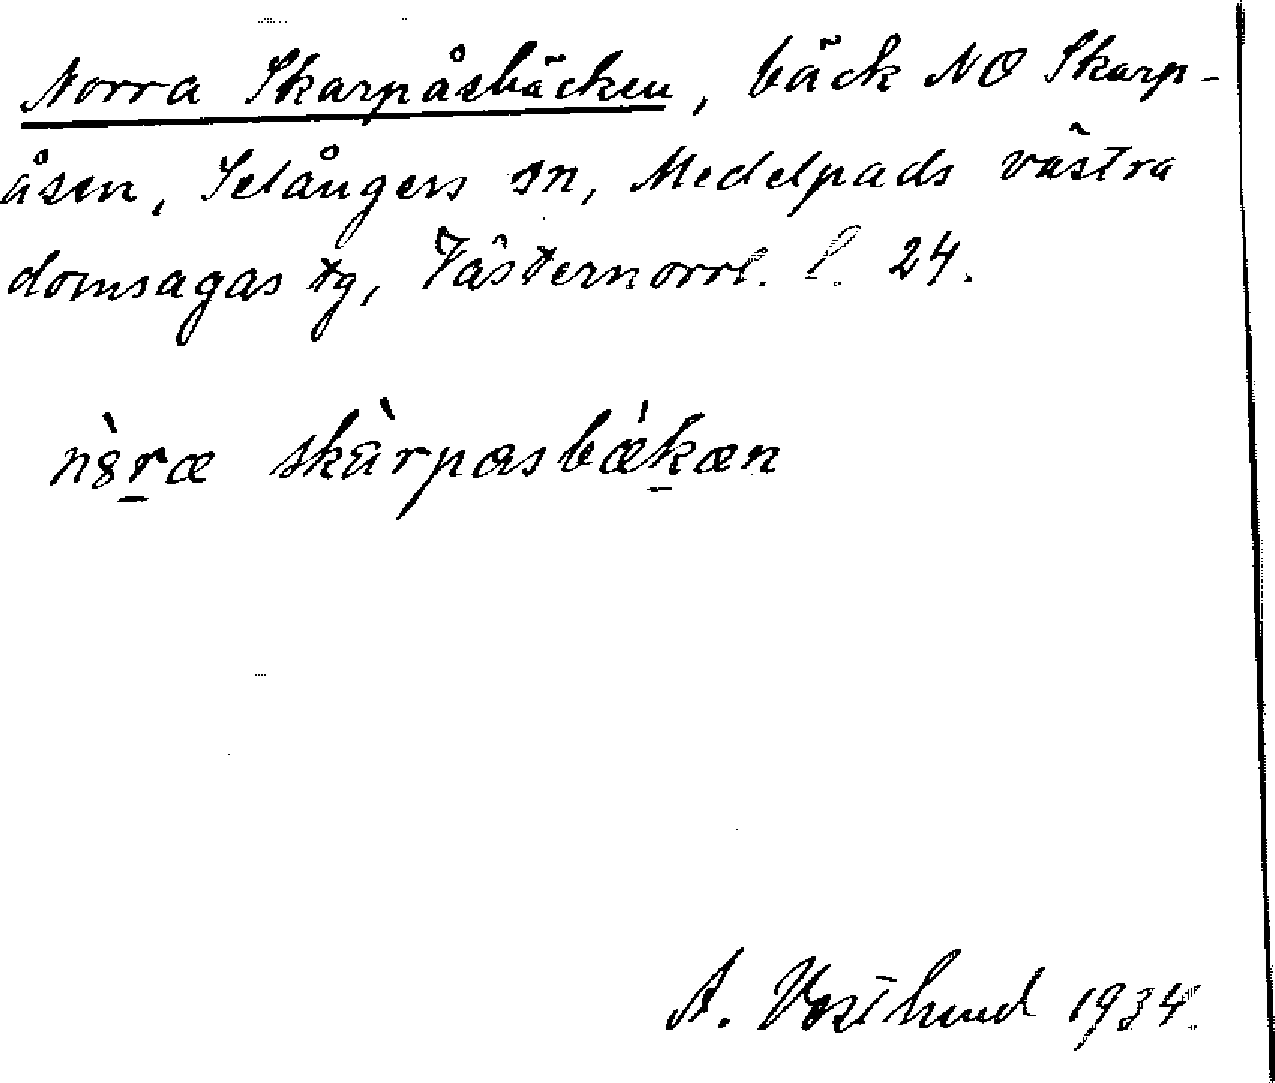 Norra Skarpåsbäcken, bäck NO Skarp-
åsen, Selångers sn, Medelpads västra
domsagas tg, Västernorrl. l. 24.
nòræ skàrpasbækæn
A. Westlund 1934.